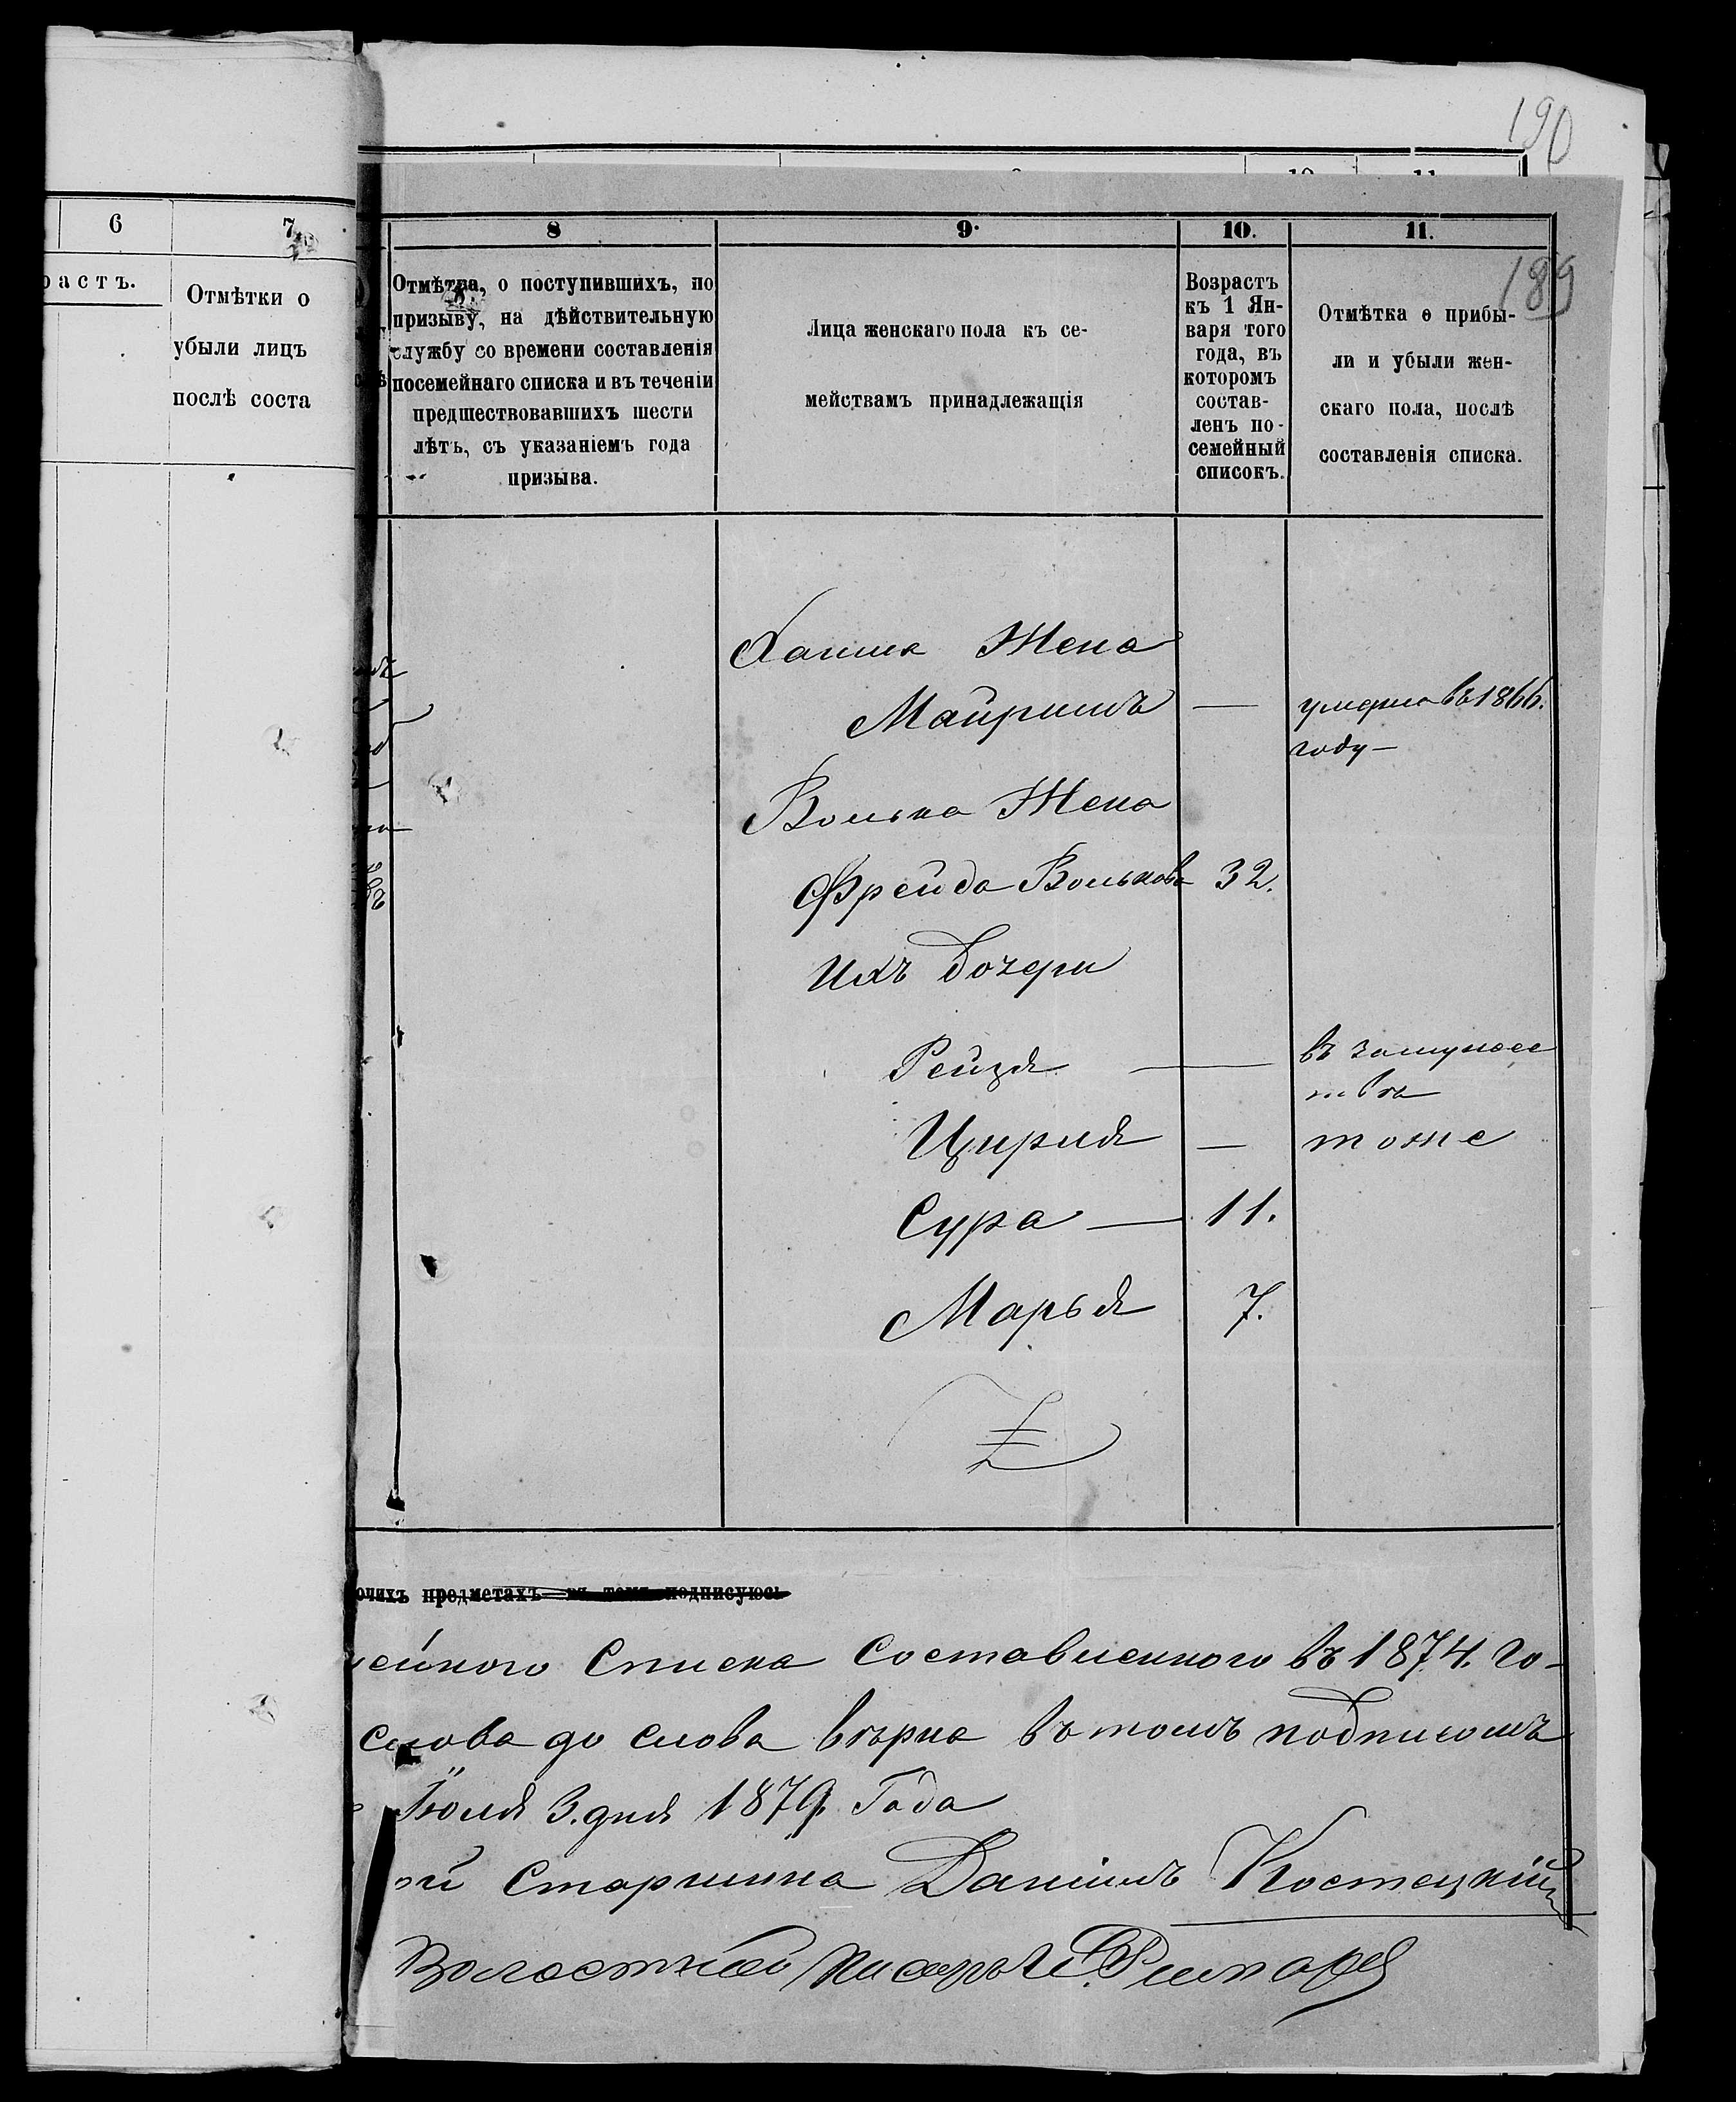 190
6
7.
растъ.
Отмѣтки о
убыли лицъ
послѣ соста
8
9.
10.
11.
189
Отмѣтка, о поступившихъ, по
призыву, на дѣйствительную
службу со времени составленія
посемейнаго списка и въ теченіи
предшествовавшихъ шести
лѣтъ, съ указаніемъ года
призыва.
Лица женскаго пола къ се-
мействамъ принадлежащія
Возрастъ
къ 1 Ян-
варя того
года, въ
которомъ
состав-
ленъ по-
семейный
списокъ.
Отмѣтка о прибы-
ли и убыли жен-
скаго пола, послѣ
составленія списка.
Жена
— умерла въ 1866.
году —
Волька Жена
Фрейда Волькова 32.
Ихъ дочери
Рейзя — въ замужес
твѣ
Цирля — тоже
Сура — 11.
Марья 7.
очихъ предметахъ въ томъ подписуюсь
ейного Списка Составленного въ 1874. го-
слова до слова вѣрна въ томъ подписомъ
Іюля 3. дня 1879. Года
ой Старшина Даніилъ Костецкій
Волостной писарь